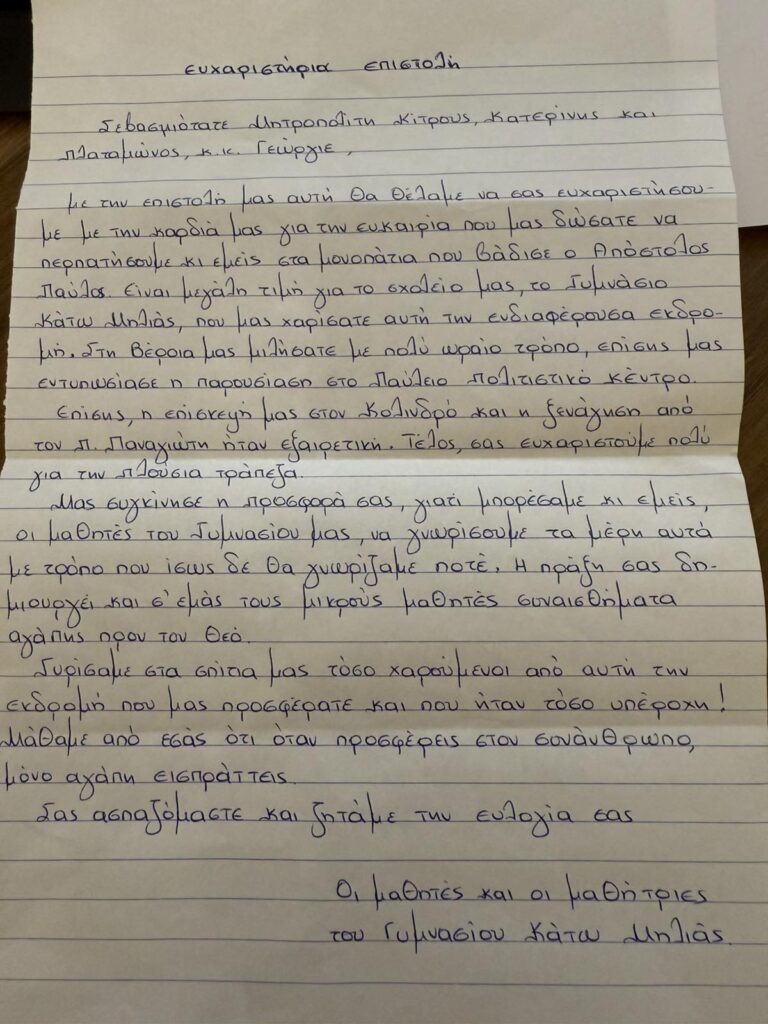 ευχαριστήρια επιστολή
Σεβασμιότατε Μητροπολίτη Κίτρους, Κατερίνης και
Πλαταμώνος, κ.κ. Γεώργιε,
με την επιστολή μας αυτή θα θέλαμε να σας ευχαριστήσου-
με με την καρδιά μας για την ευκαιρία που μας δώσατε να
περπατήσουμε κι εμείς στα μονοπάτια που βάδισε ο Απόστολος
Παύλος. Είναι μεγάλη τιμή για το σχολείο μας, το Γυμνάσιο
Κάτω Μηλιάς, που μας χαρίσατε αυτή την ενδιαφέρουσα εκδρο-
μή. Στη Βέροια μας μιλήσατε με πολύ ωραίο τρόπο, επίσης μας
εντυπωσίασε η παρουσίαση στο Παύλειο Πολιτιστικό Κέντρο.
Επίσης, η επίσκεψή μας στον Κολινδρό και η ξενάγηση από
τον π. Παναγιώτη ήταν εξαιρετική. Τέλος, σας ευχαριστούμε πολύ
για την πλούσια τράπεζα.
Μας συγκίνησε η προσφορά σας, γιατί μπορέσαμε κι εμείς,
οι μαθητές του Γυμνασίου μας, να γνωρίσουμε τα μέρη αυτά
με τρόπο που ίσως δε θα γνωρίζαμε ποτέ. Η πράξη σας δη-
μιουργεί και σ' εμάς τους μικρούς μαθητές συναισθήματα
αγάπης προν τον Θεό.
Γυρίσαμε στα σπίτια μας τόσο χαρούμενοι από αυτή την
εκδρομή που μας προσφέρατε και που ήταν τόσο υπέροχη!
Μάθαμε από εσάς ότι όταν προσφέρεις στον συνάνθρωπο,
μόνο αγάπη εισπράττεις.
Σας ασπαζόμαστε και ζητάμε την ευλογία σας
Οι μαθητές και οι μαθήτριες
του Γυμνασίου Κάτω Μηλιάς.